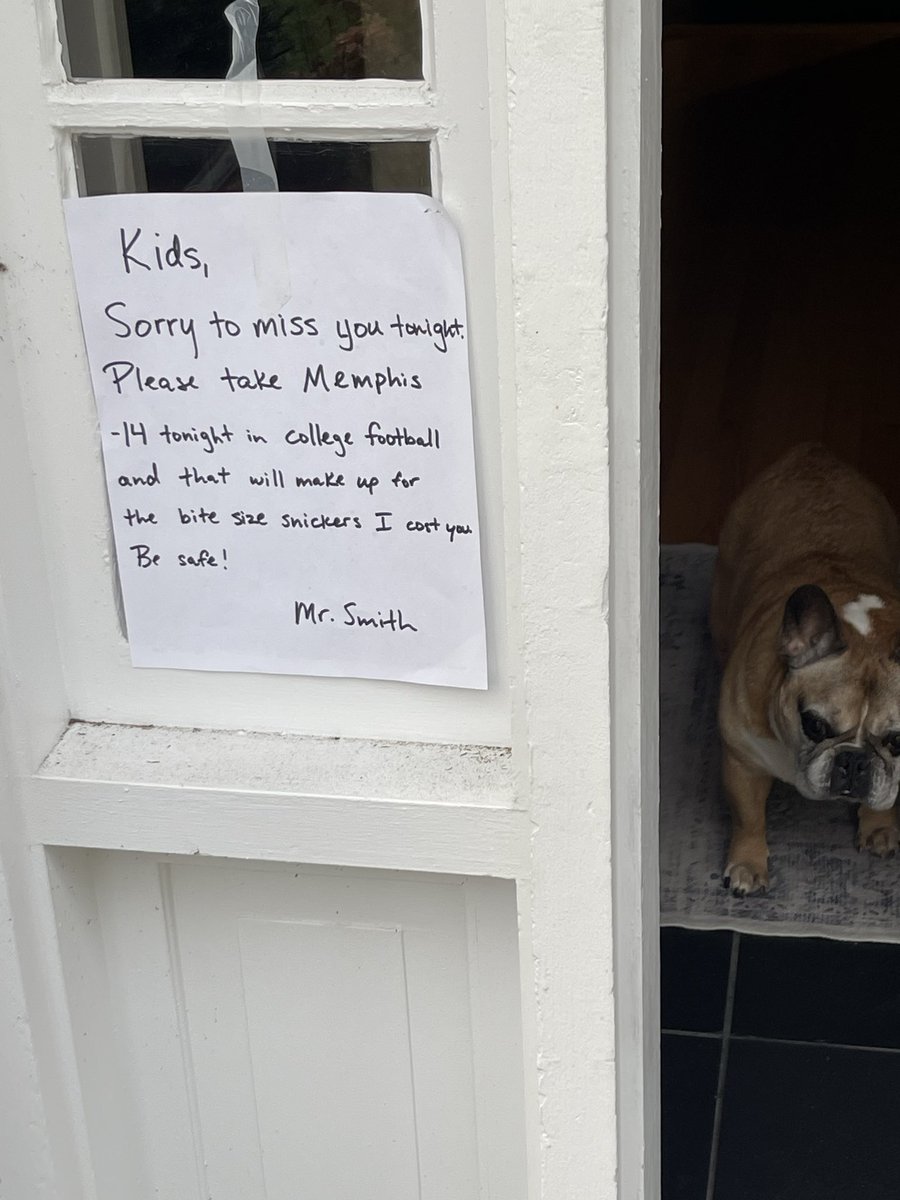 Kids,
Sorry to miss you tonight.
Please take Memphis
-14 tonight in college football
and that will make up for
the bite size snickers I cost you.
Be safe!
Mr. Smith